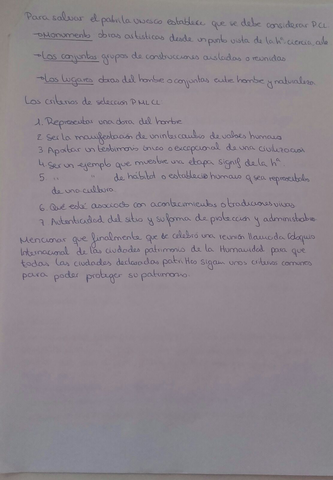 Para salvar el patri la unesco establece que se debe considerar P.CL
→Monumento obras artisticas desde un punto vista de la hª-ciencia, arte
→Los conjuntos grupos de construcciones aisladas o reunidas
→Los lugares obras del hombre o conjuntas entre hombre y naturaleza.
Los criterios de seleccion P.M.CL
1. Representar una obra del hombre
2. Ser la manifestacion de un intercambio de valores humanos
3. Aportar un testimonio único o excepcional de una civilizacion
4. Ser un ejemplo que muestre una etapa signif de la hª
5. " " de hábitat o establecto humano q sea representativo
de una cultura.
6. Que esté asociado con acontecimientos o tradiciones vivas.
7. Autenticidad del sitio y su forma de proteccion y administrativa
Mencionar que finalmente que se celebró una reunión llamada Coloquio
Internacional de las ciudades patrimonio de la Humanidad para que
todas las ciudades declaradas sigan unos criterios comunes
para poder proteger su patrimonio.